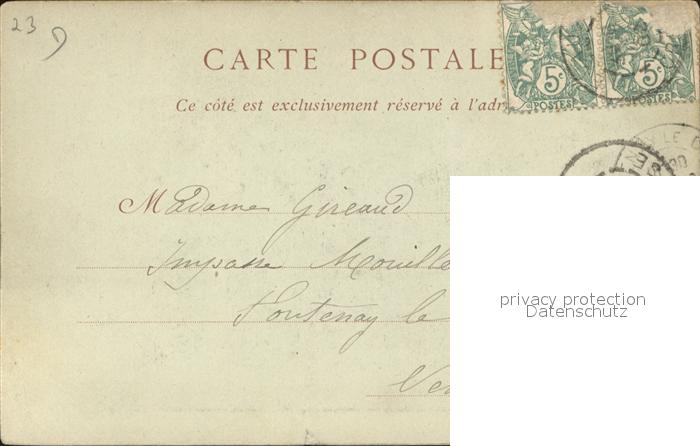 23
CARTE POSTALE
5c 5c
POSTES POSTES
Ce côté est exclusivement réservé à l'adr
LE D
Madame Gireaud
Impasse Mouille
privacy protection
Datenschutz
Fontenay le
Ve